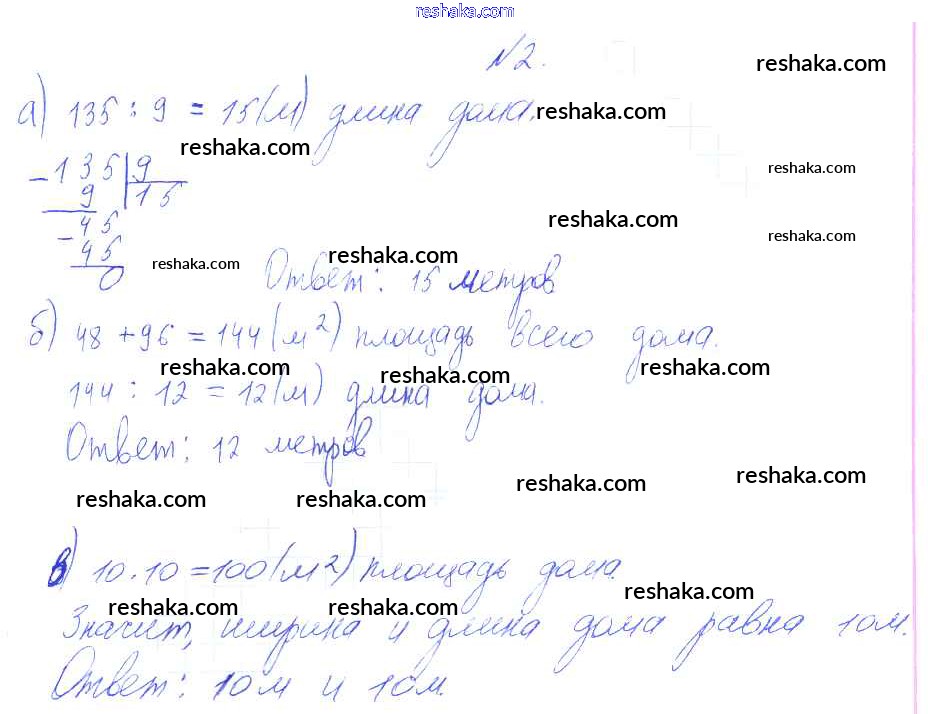 reshaka.com
№2.
reshaka.com
а) 135 : 9 = 15(м) длина дома.
reshaka.com
reshaka.com
- 135 | 9
reshaka.com
9 | 15
- 45
reshaka.com
45
reshaka.com
0
reshaka.com
reshaka.com
Ответ: 15 метров
б) 48 + 96 = 144 (м²) площадь всего дома.
reshaka.com reshaka.com reshaka.com
144 : 12 = 12(м) длина дома.
Ответ: 12 метров
reshaka.com reshaka.com reshaka.com reshaka.com
в) 10 . 10 = 100(м²) площадь дома.
reshaka.com reshaka.com reshaka.com
Значит, ширина и длина дома равна 10м.
Ответ: 10м и 10м.